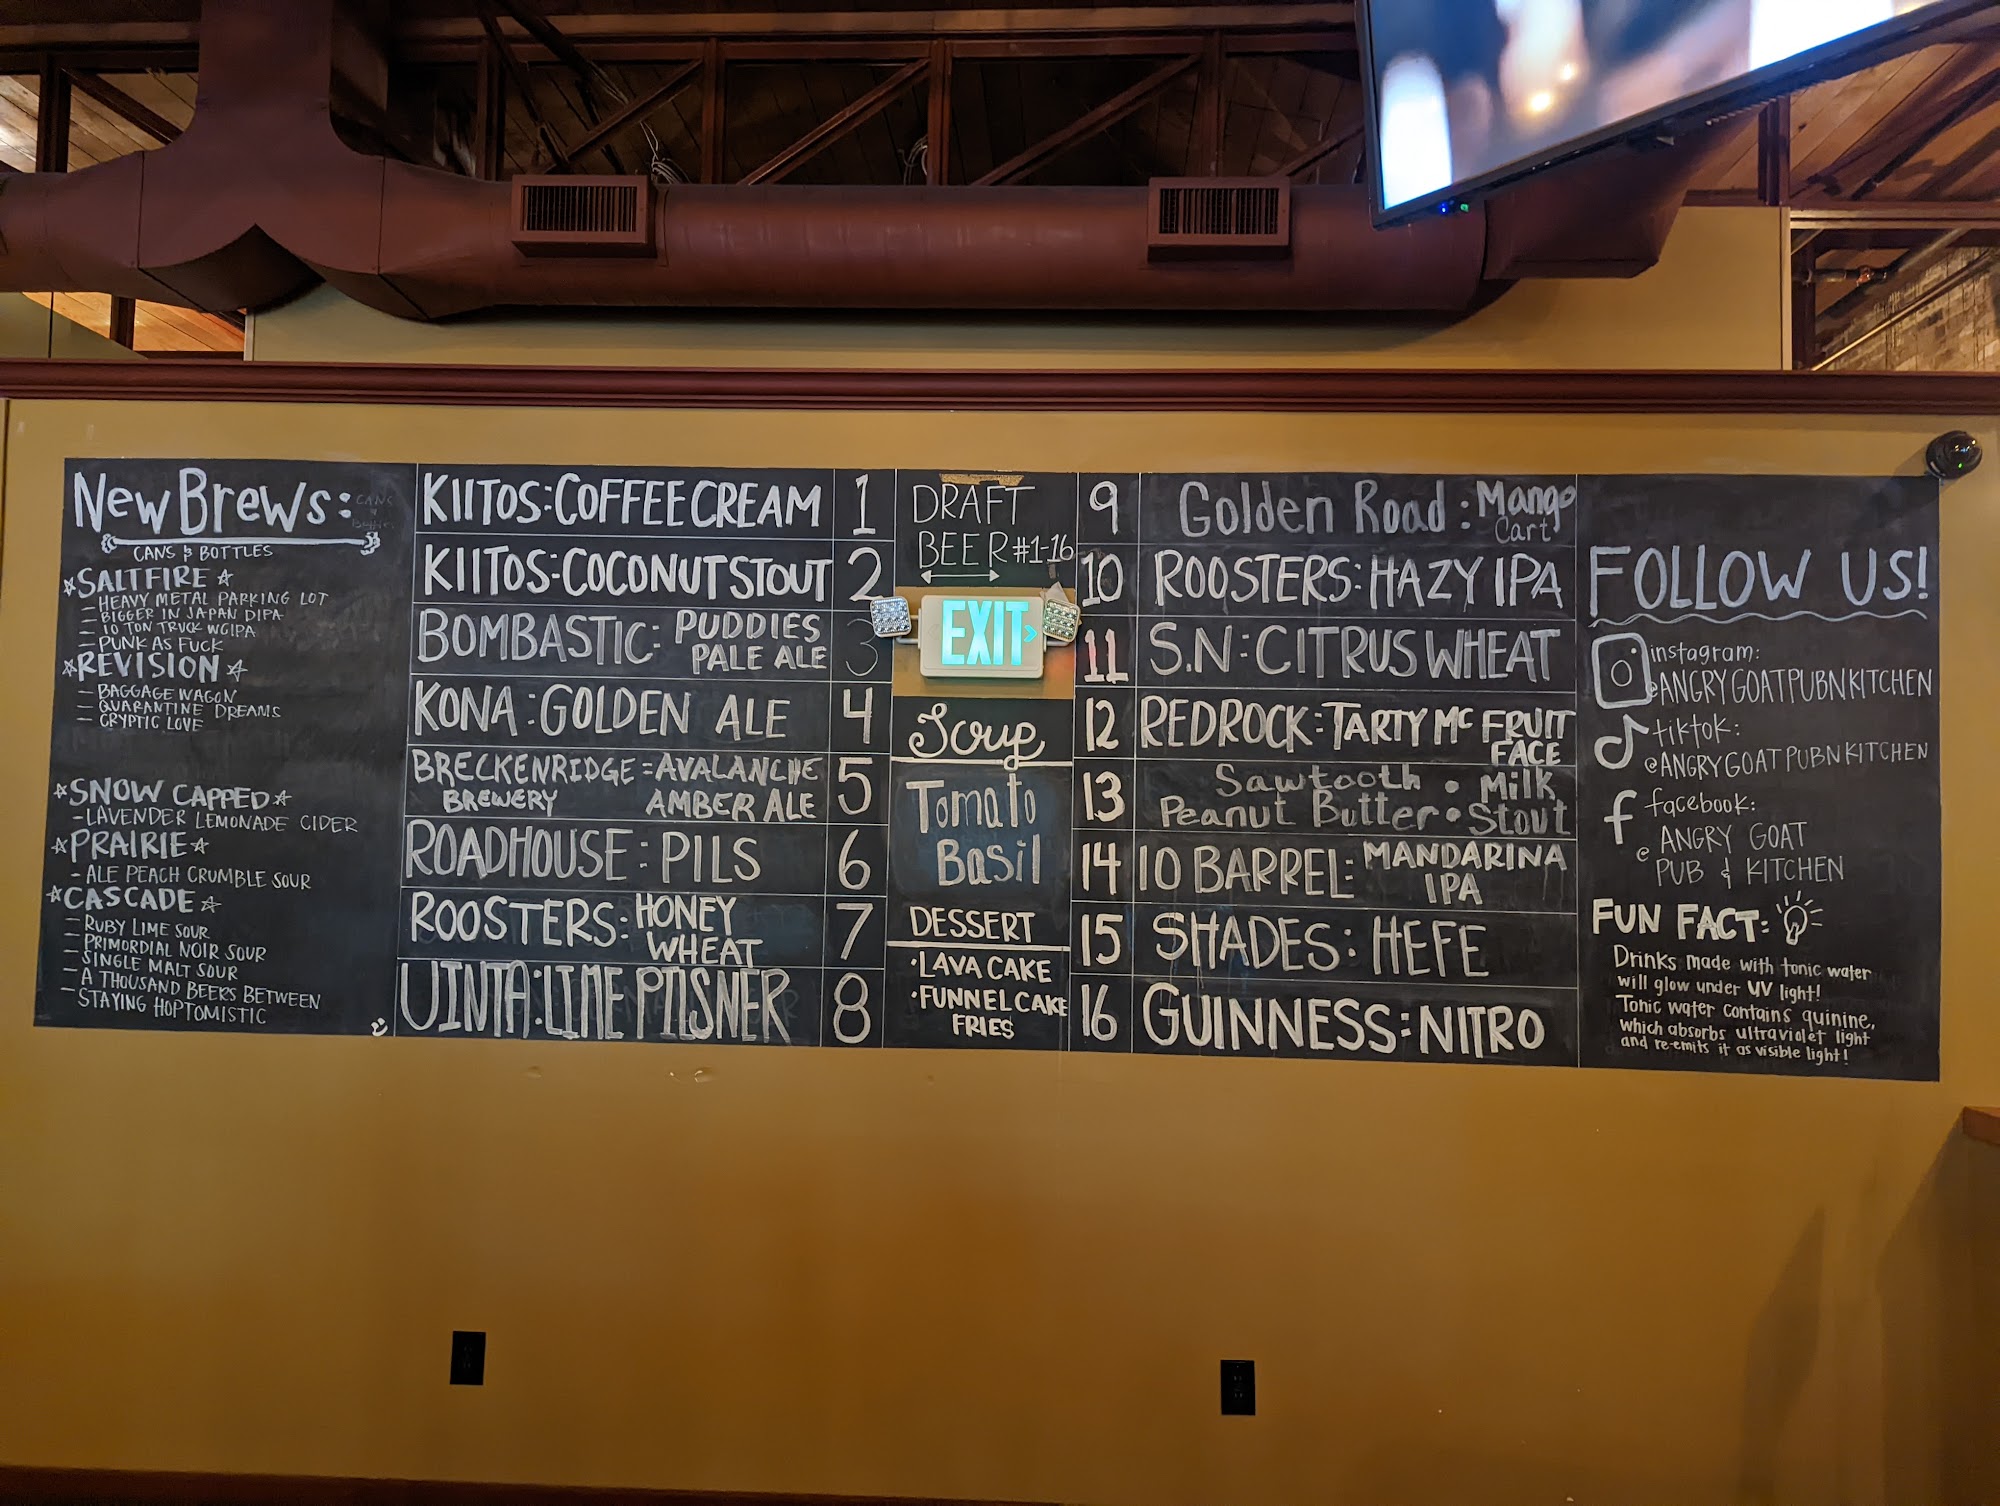 New Brews:
CANS & BOTTLES
SALTFIRE
- HEAVY METAL PARKING LOT
- BIGGER IN JAPAN DIPA
- 10 TON TRUCK WCIPA
- PUNK AS FUCK
REVISION
- BAGGAGE WAGON
- QUARANTINE DREAMS
- CRYPTIC LOVE
SNOW CAPPED
- LAVENDER LEMONADE CIDER
PRAIRIE
- ALE PEACH CRUMBLE SOUR
CASCADE
- RUBY LIME SOUR
- PRIMORDIAL NOIR SOUR
- SINGLE MALT SOUR
- A THOUSAND BEERS BETWEEN
- STAYING HOPTOMISTIC
KIITOS: COFFEE CREAM 1
KIITOS: COCONUT STOUT 2
BOMBASTIC: PUDDIES 3
PALE ALE
KONA: GOLDEN ALE 4
BRECKENRIDGE: AVALANCHE 5
BREWERY AMBER ALE
ROADHOUSE: PILS 6
ROOSTERS: HONEY 7
WHEAT
UINTA: LIME PILSNER 8
DRAFT
BEER #1-16
EXIT
Soup
Tomato
Basil
DESSERT
• LAVA CAKE
• FUNNEL CAKE
FRIES
9 Golden Road: Mango
Cart
10 ROOSTERS: HAZY IPA
11 S.N: CITRUS WHEAT
12 REDROCK: TARTY MC FRUIT
FACE
13 Sawtooth • Milk
Peanut Butter • Stout
14 10 BARREL: MANDARINA
IPA
15 SHADES: HEFE
16 GUINNESS: NITRO
FOLLOW US!
instagram:
@ANGRYGOATPUBNKITCHEN
tiktok:
@ANGRYGOATPUBNKITCHEN
f facebook:
@ ANGRY GOAT
PUB & KITCHEN
FUN FACT:
Drinks made with tonic water
will glow under UV light!
Tonic water contains quinine,
which absorbs ultraviolet light
and re-emits it as visible light!